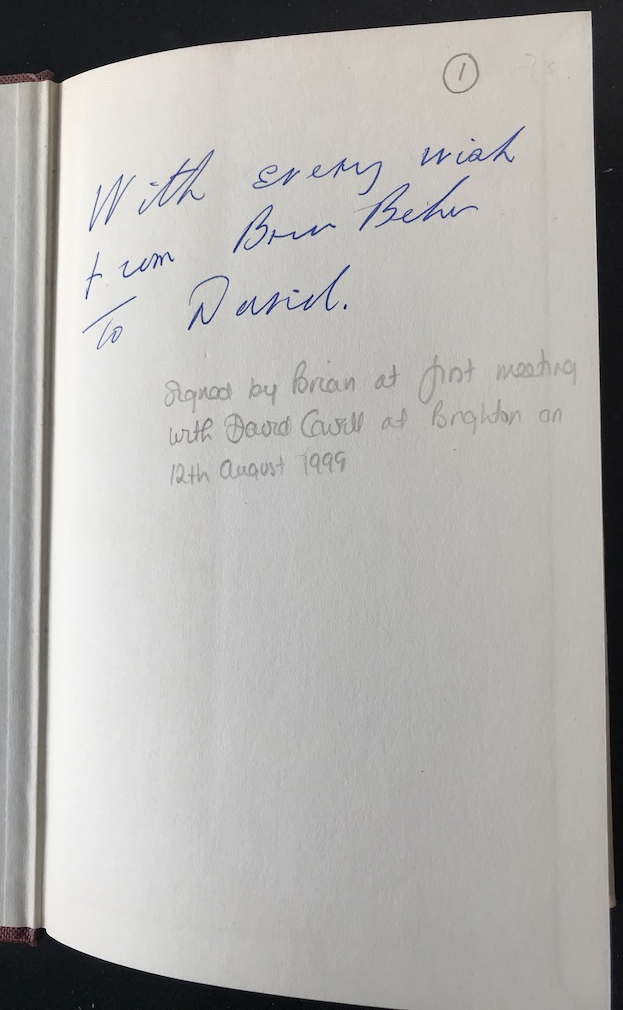 1
With every wish
from Brian Behan
To David.
Signed by Brian at first meeting
with David Cavill at Brighton on
12th August 1999